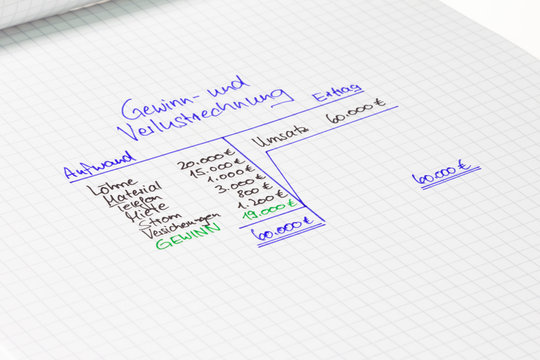 Gewinn- und
Verlustrechnung
Aufwand Ertrag
Löhne 20.000€ Umsatz 60.000€
Material 15.000€
1.000€
Miete 3.000€
Strom 800€
Versicherungen 1.200€
GEWINN 19.000€
60.000€ 60.000€